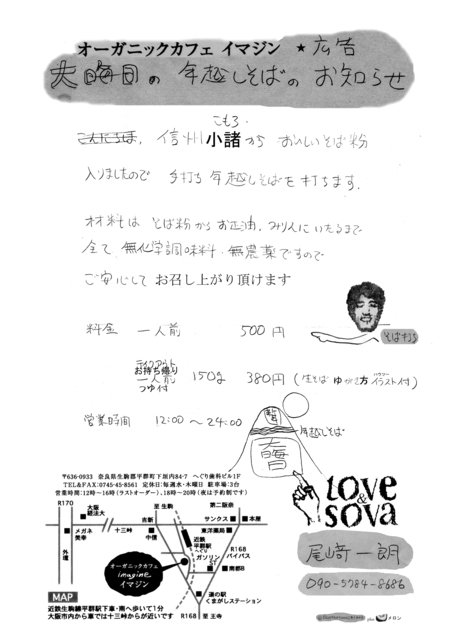 オーガニックカフェ イマジン ★ 広告
大晦日の 年越しそばの お知らせ
こもろ
こんにちは、信州小諸から おいしいそば粉
入りましたので 手打ち年越しそばを打ちます。
材料は そば粉からお正油、みりんにいたるまで
全て 無化学調味料・無農薬ですので
ご安心して お召し上がり頂けます
料金 一人前 500円
そば打ち
テイクアウト
お持ち帰り
一人前 150g 380円 (生そば ゆがき方 イラスト付)
つゆ付
営業時間 12:00〜24:00
年越しそば
大晦日
〒636-0933 奈良県生駒郡平群町下垣内84-7 へぐり歯科ビル1F
TEL&FAX:0745-45-8561 定休日:毎週水・木曜日 駐車場:3台
営業時間:12時〜16時(ラストオーダー)、18時〜20時(夜は予約制です)
love
&
sova
尾﨑 一朗
090-5784-8686
R170
大阪経法大
至 生駒
第二阪奈
サンクス
本屋
メガネ
吉新
東洋薬局
美幸
十三峠
中信
近鉄
平群駅
へぐり
R168
バイパス
ガソリン
ST
外環
オーガニックカフェ
imagine
イマジン
南都B
R168
道の駅
くまがしステーション
至 王寺
MAP
近鉄生駒線平群駅下車・南へ歩いて1分
大阪市内から車では十三峠からが近いです
plus メロン